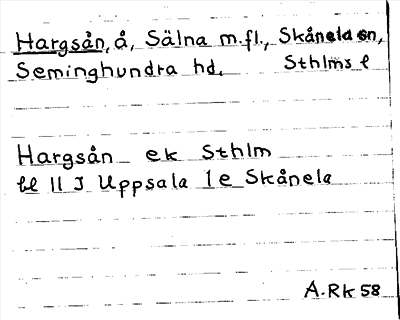 Hargsån, å, Sälna m.fl., Skånela sn,
Seminghundra hd. Sthlms l
Hargsån ek Sthlm
bl 11 J Uppsala 1e Skånela
A.Rk 58